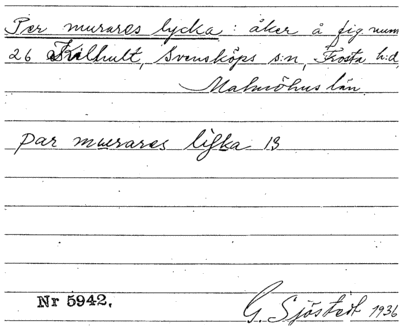 Per murares lycka : åker å fig num
26 Killhult, Svensköps s:n, Frosta h:d,
Malmöhus län.
par murares lyka 13
Nr 5942.
G. Sjöstedt 1936